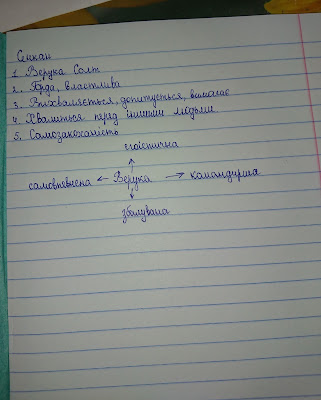 Сенкан
1. Верука Солт
2. Горда, властлива
3. Вихваляється, допитується, вимагає
4. Хвалиться перед іншими людьми
5. Самозакоханість
егоїстична
самовпевнена ← Верука → командирша
збалувана